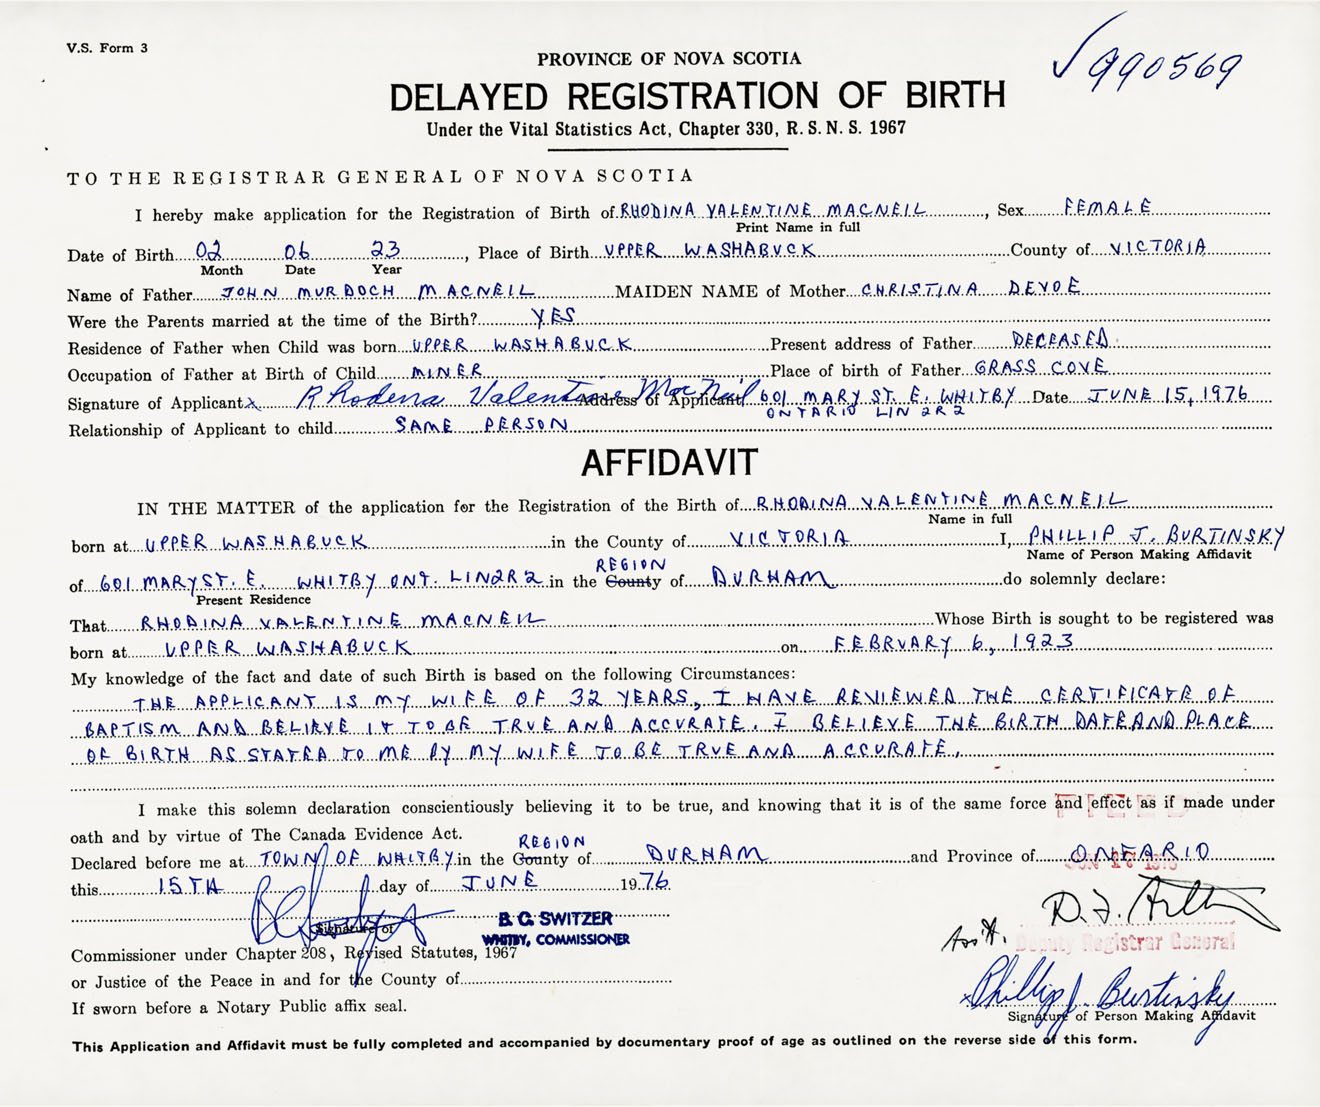 V.S. Form 3
√990569
PROVINCE OF NOVA SCOTIA
DELAYED REGISTRATION OF BIRTH
Under the Vital Statistics Act, Chapter 330, R. S. N. S. 1967
TO THE REGISTRAR GENERAL OF NOVA SCOTIA
I hereby make application for the Registration of Birth of RHODINA VALENTINE MACNEIL, Sex FEMALE
Print Name in full
Date of Birth 02 06 23, Place of Birth UPPER WASHABUCK County of VICTORIA
Month Date Year
Name of Father JOHN MURDOCH MACNEIL MAIDEN NAME of Mother CHRISTINA DEVOE
Were the Parents married at the time of the Birth? YES
Residence of Father when Child was born UPPER WASHABUCK Present address of Father DECEASED
Occupation of Father at Birth of Child MINER Place of birth of Father GRASS COVE
Signature of Applicant x Rhodena Valentine MacNeil Address of Applicant 601 MARY ST. E. WHITBY Date JUNE 15, 1976
ONTARIO L1N 2R2
Relationship of Applicant to child SAME PERSON
AFFIDAVIT
IN THE MATTER of the application for the Registration of the Birth of RHODINA VALENTINE MACNEIL
Name in full
born at UPPER WASHABUCK in the County of VICTORIA I, PHILLIP J. BURTINSKY
Name of Person Making Affidavit
REGION
of 601 MARY ST. E. WHITBY ONT. L1N2R2 in the County of DURHAM do solemnly declare:
Present Residence
That RHODINA VALENTINE MACNEIL Whose Birth is sought to be registered was
born at UPPER WASHABUCK on FEBRUARY 6, 1923
My knowledge of the fact and date of such Birth is based on the following Circumstances:
THE APPLICANT IS MY WIFE OF 32 YEARS, I HAVE REVIEWED THE CERTIFICATE OF
BAPTISM AND BELIEVE IT TO BE TRUE AND ACCURATE. I BELIEVE THE BIRTH DATE AND PLACE
OF BIRTH AS STATED TO ME BY MY WIFE TO BE TRUE AND ACCURATE.
I make this solemn declaration conscientiously believing it to be true, and knowing that it is of the same force and effect as if made under
oath and by virtue of The Canada Evidence Act.
FILED
REGION
Declared before me at TOWN OF WHITBY in the County of DURHAM and Province of ONTARIO
this 15TH day of JUNE 1976
B. G. SWITZER
Signature of
WHITBY, COMMISSIONER
Ass't. Deputy Registrar General
Commissioner under Chapter 208, Revised Statutes, 1967
or Justice of the Peace in and for the County of
x Phillip J. Burtinsky
If sworn before a Notary Public affix seal.
Signature of Person Making Affidavit
This Application and Affidavit must be fully completed and accompanied by documentary proof of age as outlined on the reverse side of this form.